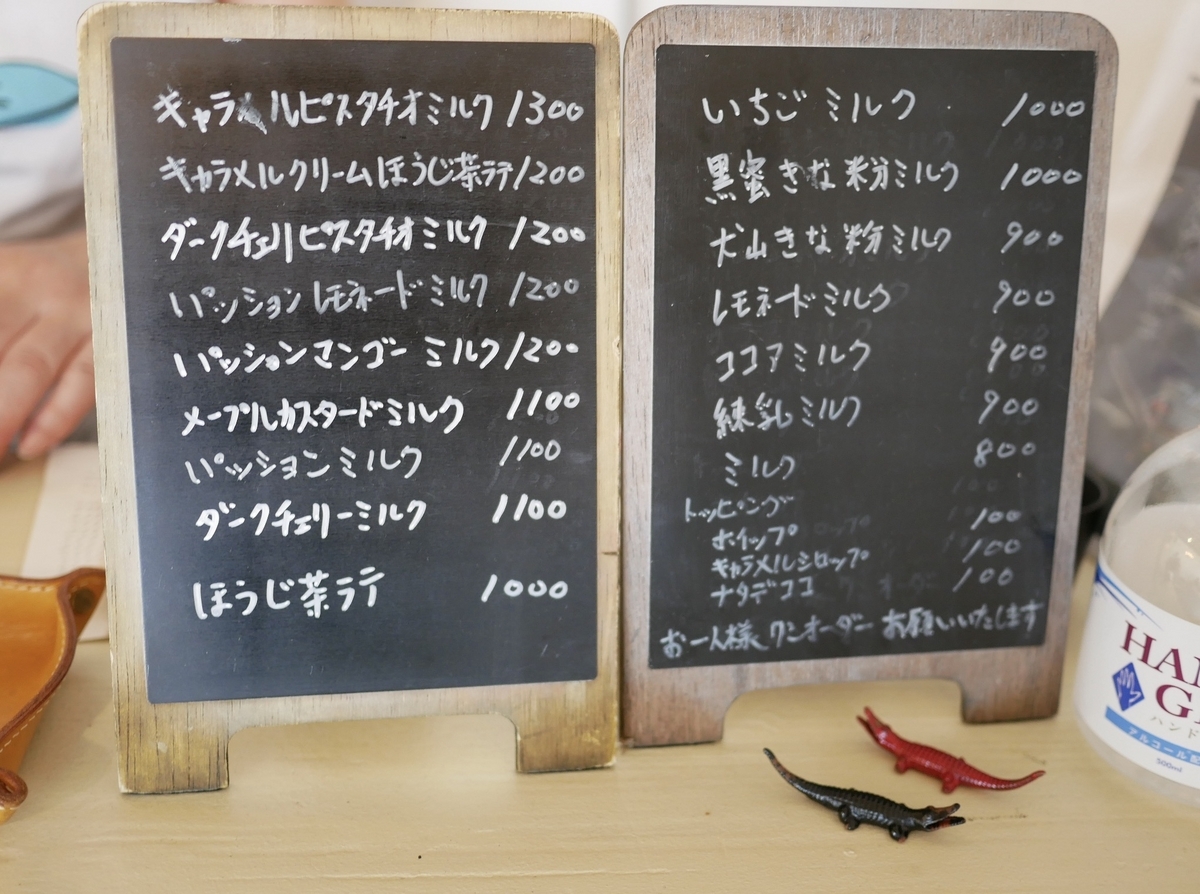 キャラメルピスタチオミルク 1300
キャラメルクリームほうじ茶ラテ 1200
ダークチェリーピスタチオミルク 1200
パッションレモネードミルク 1200
パッションマンゴーミルク 1200
メープルカスタードミルク 1100
パッションミルク 1100
ダークチェリーミルク 1100
ほうじ茶ラテ 1000
いちごミルク 1000
黒蜜きな粉ミルク 1000
犬山きな粉ミルク 900
レモネードミルク 900
ココアミルク 900
練乳ミルク 900
ミルク 800
トッピング
ホイップ 100
キャラメルシロップ 100
ナタデココ 100
お一人様ワンオーダーお願いいたします
HAN
G
ハンド
アルコール
500ml